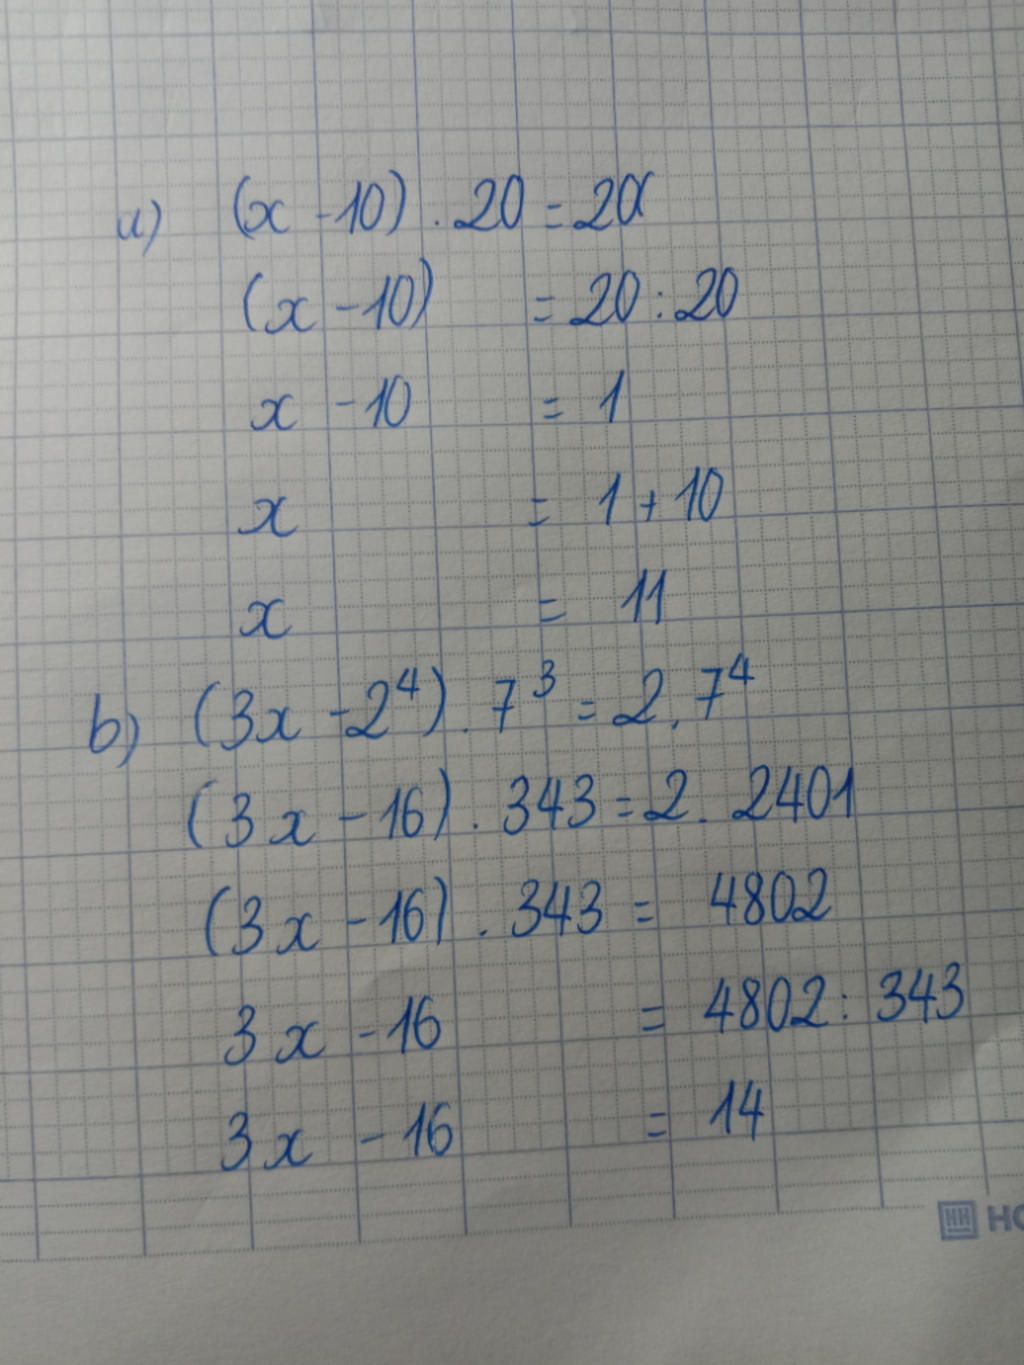 a) (x - 10) . 20 = 20
(x - 10) = 20 : 20
x - 10 = 1
x = 1 + 10
x = 11
b) (3x - 2⁴) . 7³ = 2 . 7⁴
(3x - 16) . 343 = 2 . 2401
(3x - 16) . 343 = 4802
3x - 16 = 4802 : 343
3x - 16 = 14
HH